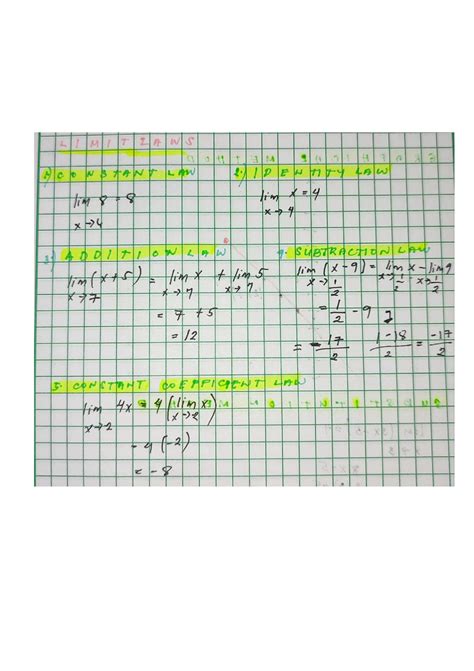 LIMIT LAWS
1) CONSTANT LAW
lim 8 = 8
x→4
2) IDENTITY LAW
lim x = 4
x→4
3) ADDITION LAW
lim (x+5) = lim x + lim 5
x→7 x→7 x→7
= 7 + 5
= 12
4. SUBTRACTION LAW
lim (x-9) = lim x - lim 9
x→1/2 x→1/2 x→1/2
= 1/2 - 9
= -17/2 1-18/2 = -17/2
5. CONSTANT COEFFICIENT LAW
lim 4x = 4 (lim x)
x→2 x→2
= 4 (-2)
= -8